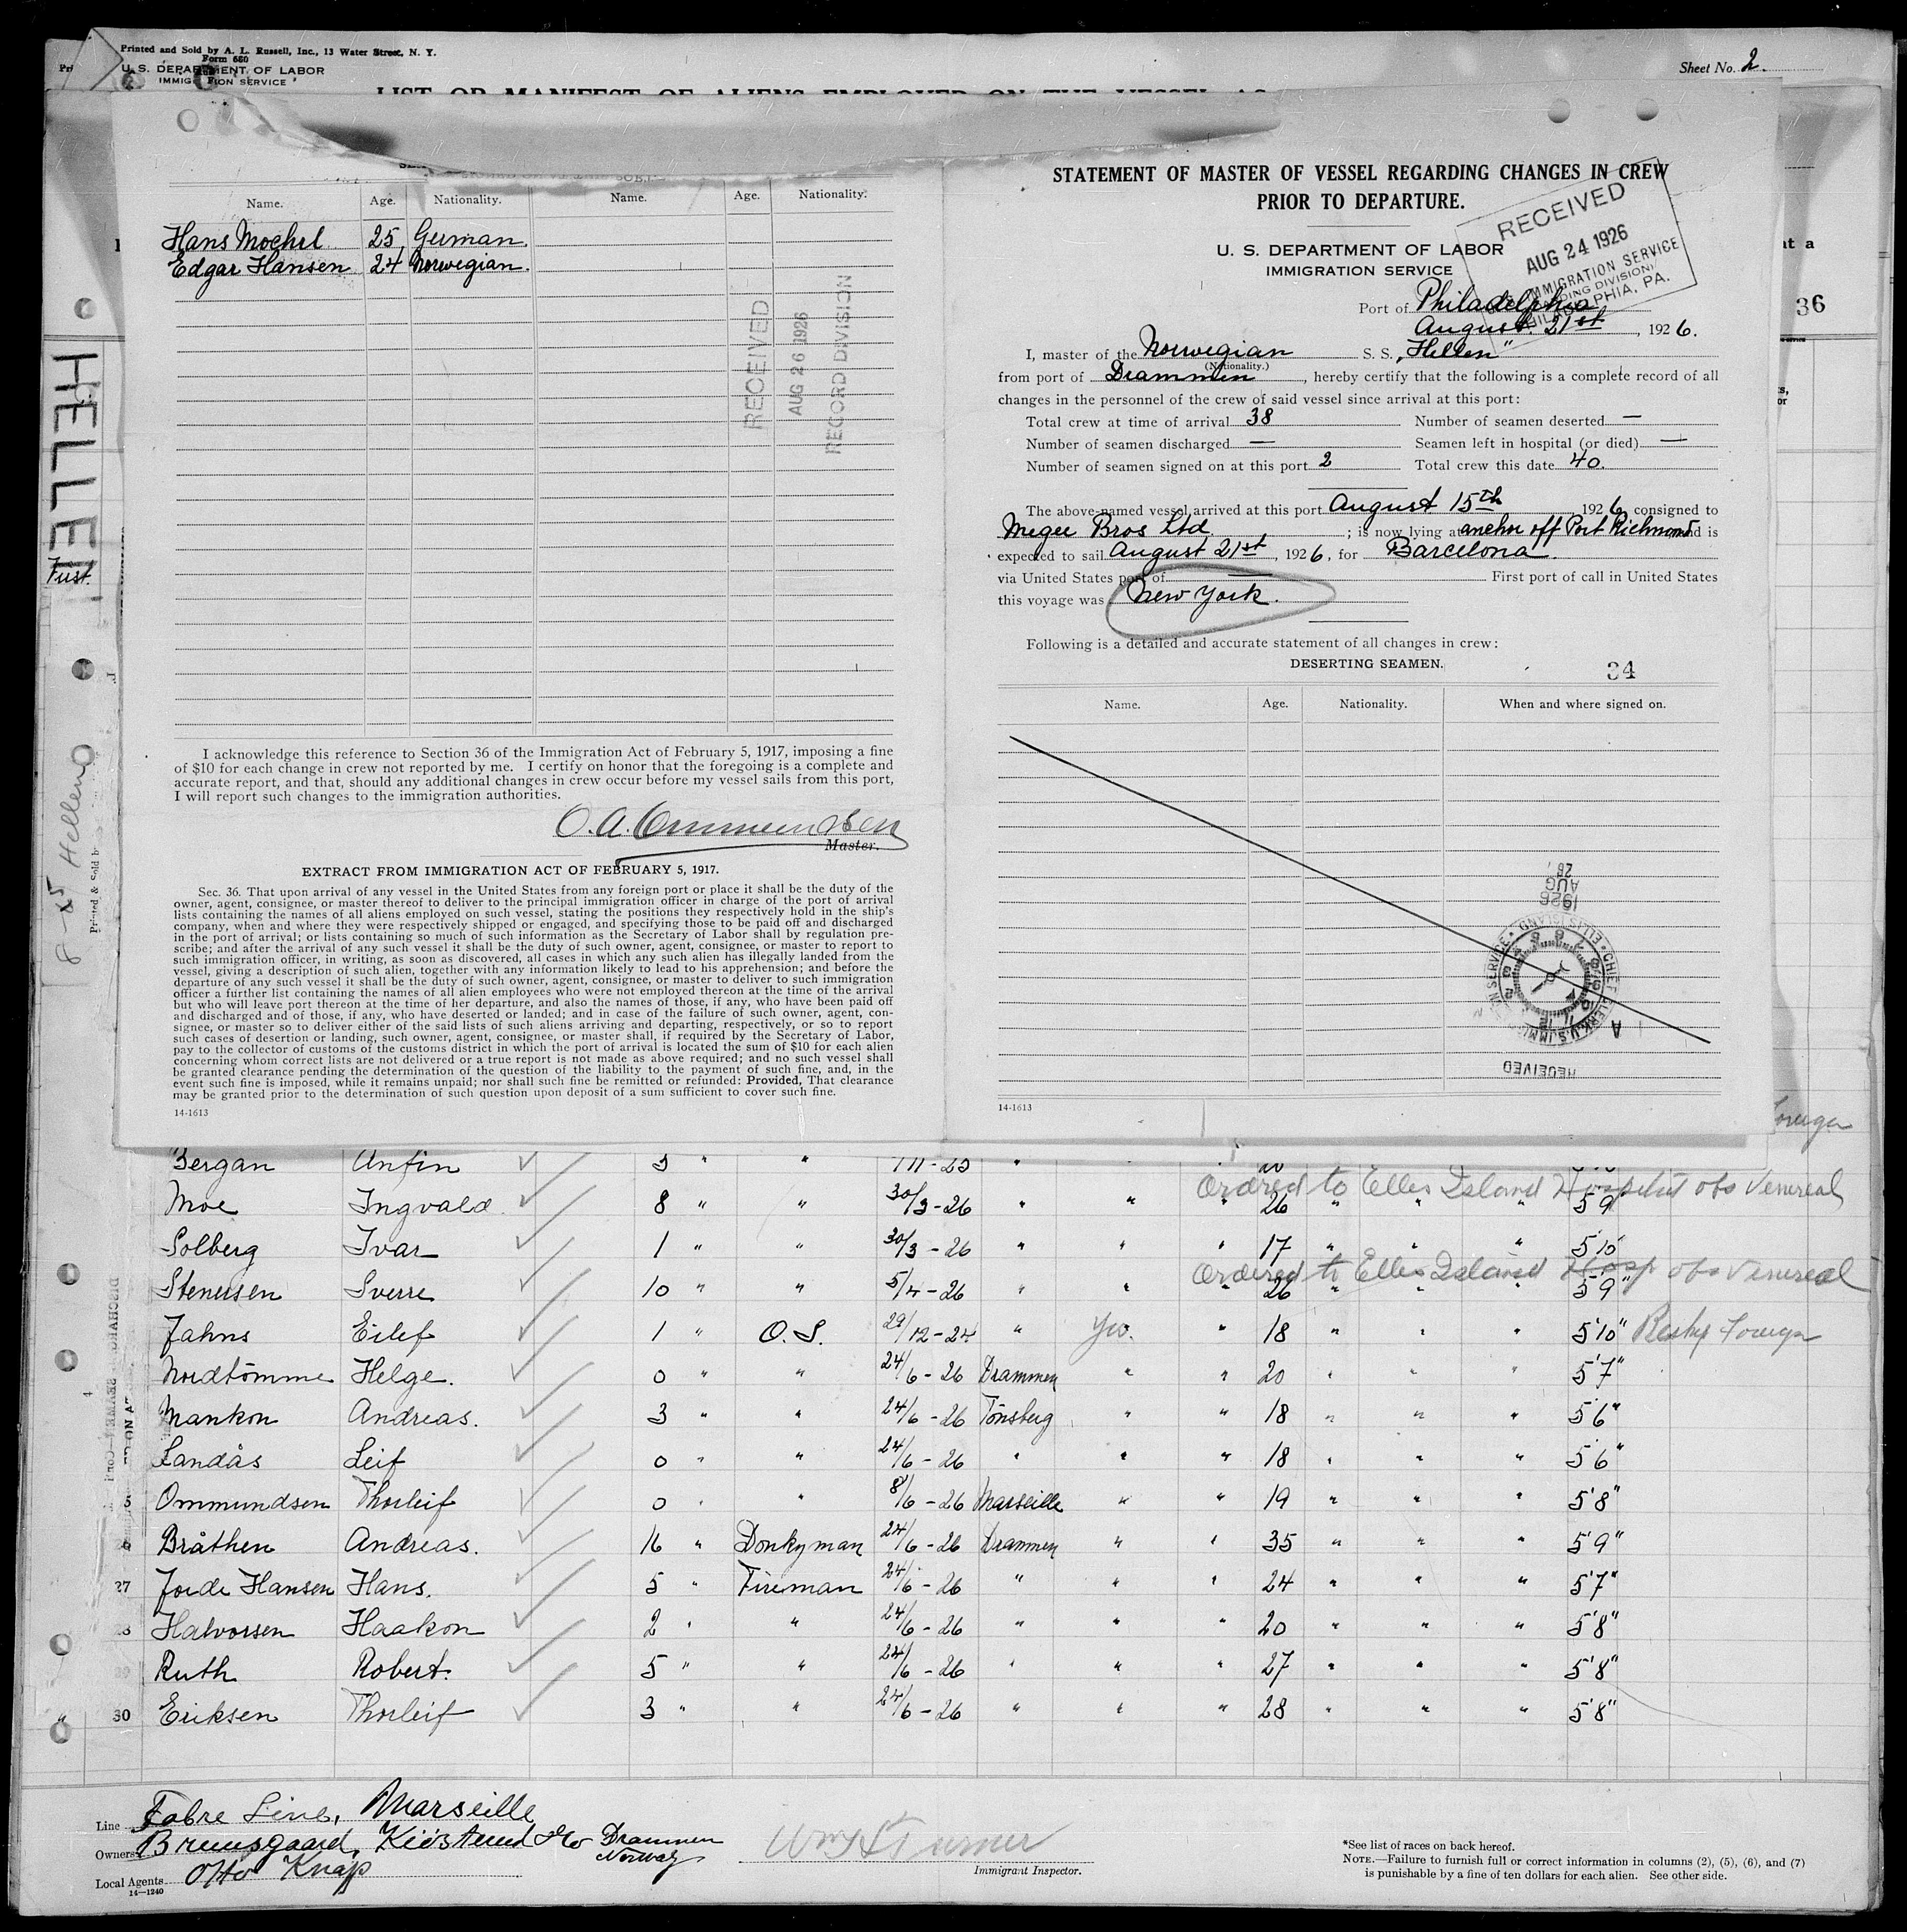 Printed and Sold by A. L. Russell, Inc., 13 Water Street, N. Y.
Form 680
U. S. DEPARTMENT OF LABOR
IMMIGRATION SERVICE
Sheet No. 2.
LIST OR MANIFEST OF ALIENS EMPLOYED ON THE VESSEL AS
Name. Age. Nationality. Name. Age. Nationality.
Hans Mochel 25 German.
Edgar Hansen 24 Norwegian.
RECEIVED
AUG 26 1926
RECORD DIVISION
I acknowledge this reference to Section 36 of the Immigration Act of February 5, 1917, imposing a fine
of $10 for each change in crew not reported by me. I certify on honor that the foregoing is a complete and
accurate report, and that, should any additional changes in crew occur before my vessel sails from this port,
I will report such changes to the immigration authorities.
O. A. Ommundsen
Master.
EXTRACT FROM IMMIGRATION ACT OF FEBRUARY 5, 1917.
Sec. 36. That upon arrival of any vessel in the United States from any foreign port or place it shall be the duty of the
owner, agent, consignee, or master thereof to deliver to the principal immigration officer in charge of the port of arrival
lists containing the names of all aliens employed on such vessel, stating the positions they respectively hold in the ship's
company, when and where they were respectively shipped or engaged, and specifying those to be paid off and discharged
in the port of arrival; or lists containing so much of such information as the Secretary of Labor shall by regulation pre-
scribe; and after the arrival of any such vessel it shall be the duty of such owner, agent, consignee, or master to report to
such immigration officer, in writing, as soon as discovered, all cases in which any such alien has illegally landed from the
vessel, giving a description of such alien, together with any information likely to lead to his apprehension; and before the
departure of any such vessel it shall be the duty of such owner, agent, consignee, or master to deliver to such immigration
officer a further list containing the names of all alien employees who were not employed thereon at the time of the arrival
but who will leave port thereon at the time of her departure, and also the names of those, if any, who have been paid off
and discharged and of those, if any, who have deserted or landed; and in case of the failure of such owner, agent, con-
signee, or master so to deliver either of the said lists of such aliens arriving and departing, respectively, or so to report
such cases of desertion or landing, such owner, agent, consignee, or master shall, if required by the Secretary of Labor,
pay to the collector of customs of the customs district in which the port of arrival is located the sum of $10 for each alien
concerning whom correct lists are not delivered or a true report is not made as above required; and no such vessel shall
be granted clearance pending the determination of the question of the liability to the payment of such fine, and, in the
event such fine is imposed, while it remains unpaid; nor shall such fine be remitted or refunded: Provided, That clearance
may be granted prior to the determination of such question upon deposit of a sum sufficient to cover such fine.
14-1613
STATEMENT OF MASTER OF VESSEL REGARDING CHANGES IN CREW
PRIOR TO DEPARTURE.
RECEIVED
AUG 24 1926
IMMIGRATION SERVICE
PHILADELPHIA, PA.
U. S. DEPARTMENT OF LABOR
IMMIGRATION SERVICE
Port of Philadelphia
August 21st, 1926.
I, master of the Norwegian S. S. "Hellen"
(Nationality.)
from port of Drammen, hereby certify that the following is a complete record of all
changes in the personnel of the crew of said vessel since arrival at this port:
Total crew at time of arrival 38 Number of seamen deserted —
Number of seamen discharged — Seamen left in hospital (or died) —
Number of seamen signed on at this port 2 Total crew this date 40.
The above-named vessel arrived at this port August 15th 1926, consigned to
Megee Bros Ltd; is now lying at anchor off Port Richmond and is
expected to sail August 21st, 1926, for Barcelona.
via United States port of — First port of call in United States
this voyage was New York.
Following is a detailed and accurate statement of all changes in crew:
DESERTING SEAMEN.
34
Name. Age. Nationality. When and where signed on.
1926
AUG
26
RECEIVED
14-1613
36
HELLEN
First.
8-25 Hellen
Bergan Anfin
Ordred to Ellis Island Hospital obs Venereal
Moe Ingvald 8 " " 30/3-26 " " " 26 " " " 5'9"
Solberg Ivar 1 " " 30/3-26 " " " 17 " " " 5'10
Ordered to Ellis Island Hosp obs Venereal
Stenersen Sverre 10 " " 5/4-26 " " " 26 " " " 5'9"
Jahns Eilef 1 " O.S. 29/12-24 " Yes. " 18 " " " 5'10"
Nordtömme Helge. 0 " " 24/6-26 Drammen " " 20 " " " 5'7"
Mankon Andreas. 3 " " 24/6-26 Tönsberg " " 18 " " " 5'6"
Landås Leif 0 " " 24/6-26 " " " 18 " " " 5'6"
Ommundsen Thorleif 0 " " 8/6-26 Marseille " " 19 " " " 5'8"
Bråthen Andreas. 16 " Donkyman 24/6-26 Drammen " " 35 " " " 5'9"
27 Jorde Hansen Hans. 5 " Fireman 24/6-26 " " " 24 " " " 5'7"
28 Halvorsen Haakon 2 " " 24/6-26 " " " 20 " " " 5'8"
Ruth Robert. 5 " " 24/6-26 " " " 27 " " " 5'8"
30 Eriksen Thorleif 3 " " 24/6-26 " " " 28 " " " 5'8"
Line Fabre Line, Marseille
Owners Bruusgaard, Kiösterud & Co Drammen Norway
Local Agents Otto Knap
14-1240
Wm H Turner
Immigrant Inspector.
*See list of races on back hereof.
NOTE.—Failure to furnish full or correct information in columns (2), (5), (6), and (7)
is punishable by a fine of ten dollars for each alien. See other side.